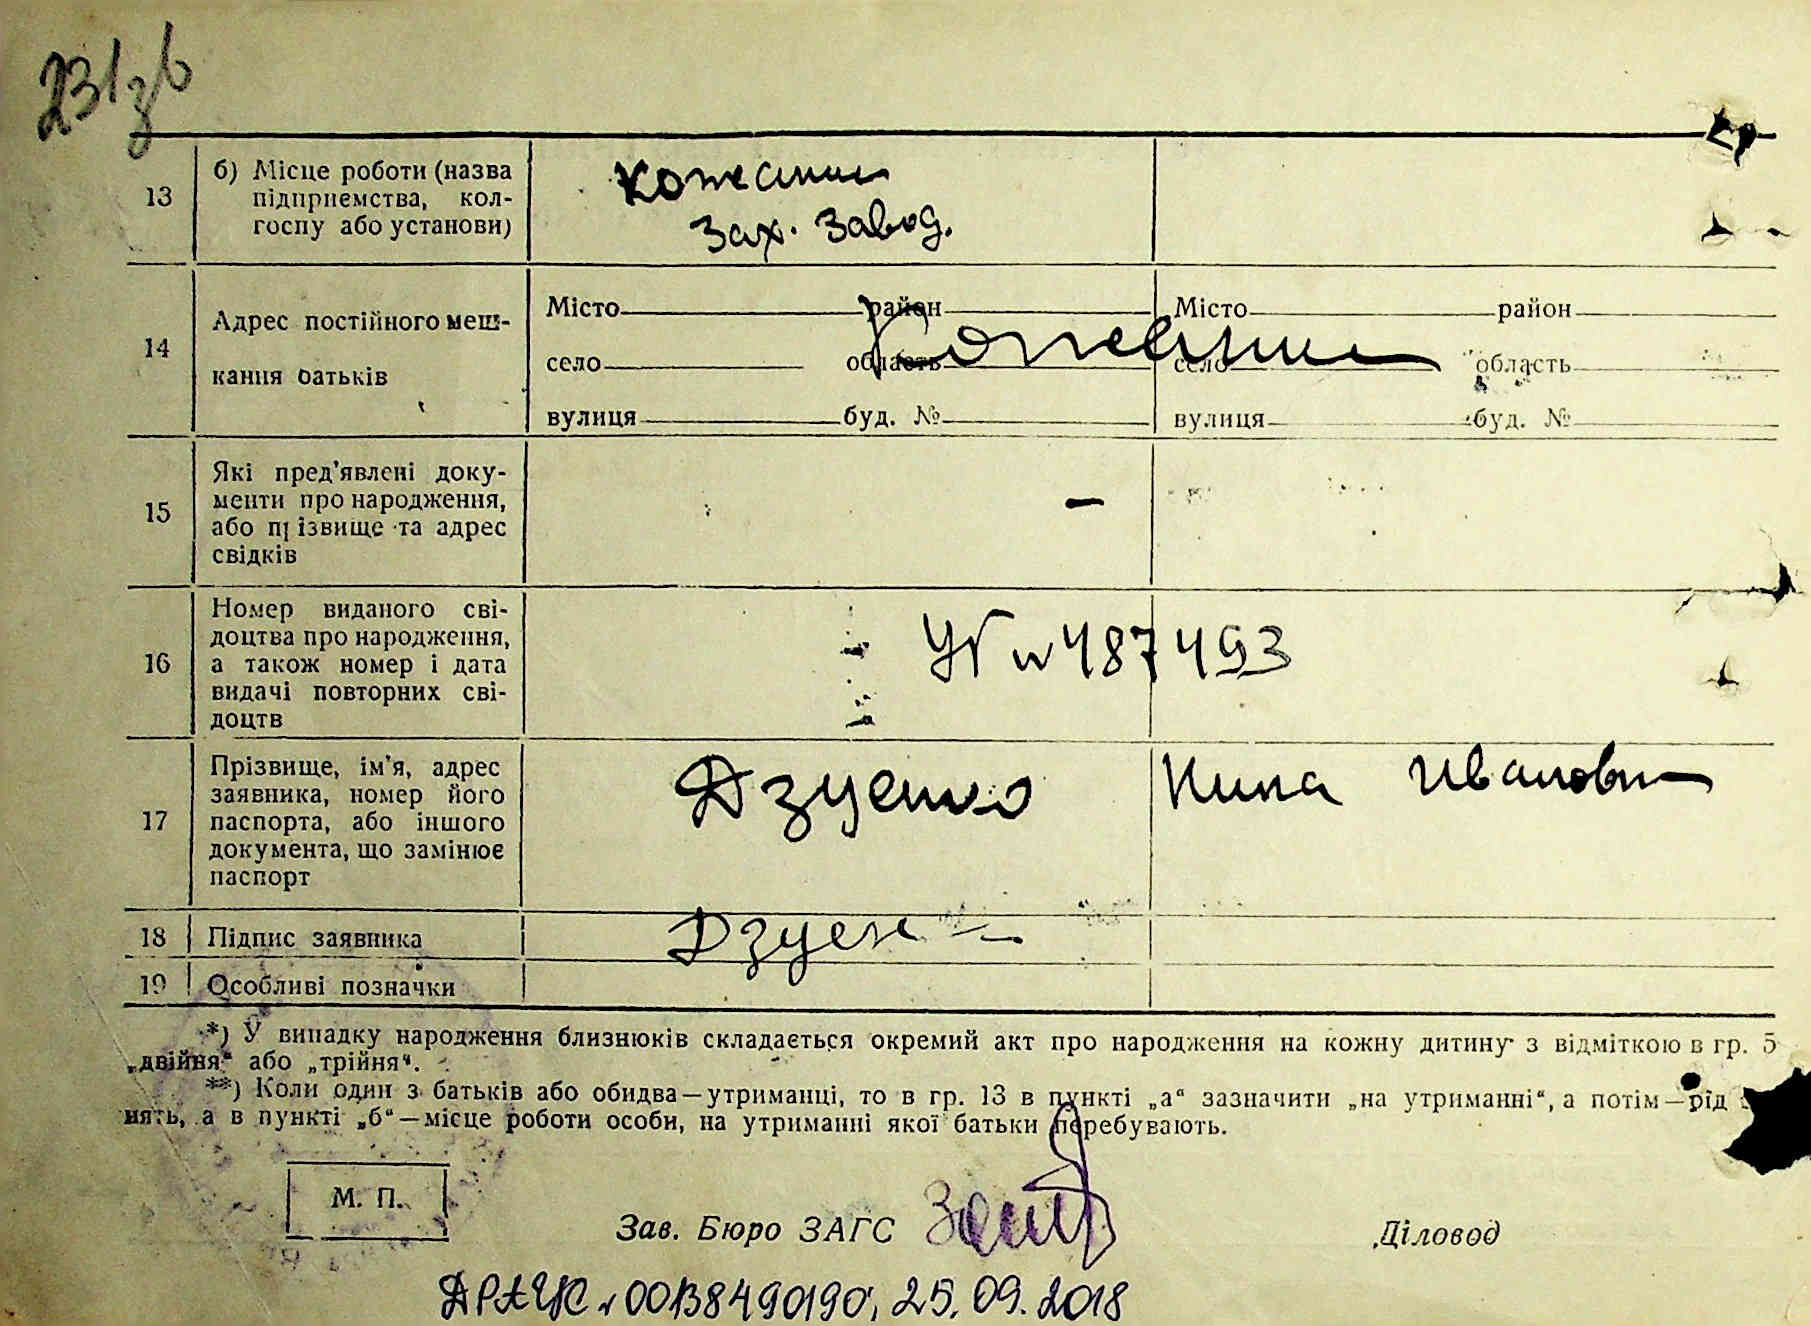 231зв
13
б) Місце роботи (назва
підприємства, кол-
госпу або установи)
Кожанки
Зах. Завод.
14
Адрес постійного меш-
кання батьків
Місто район Місто район
село область село область
вулиця буд. № вулиця буд. №
Кожанки
15
Які пред'явлені доку-
менти про народження,
або прізвище та адрес
свідків
–
16
Номер виданого сві-
доцтва про народження,
а також номер і дата
видачі повторних сві-
доцтв
№ 487493
17
Прізвище, ім'я, адрес
заявника, номер його
паспорта, або іншого
документа, що замінює
паспорт
Дзуенко Нина Ивановн
18 Підпис заявника
Дзуен
19 Особливі позначки
*) У випадку народження близнюків складається окремий акт про народження на кожну дитину з відміткою в гр. 5
„двійня“ або „трійня“.
**) Коли один з батьків або обидва—утриманці, то в гр. 13 в пункті „а“ зазначити „на утриманні“, а потім—рід
нять, а в пункті „б“—місце роботи особи, на утриманні якої батьки перебувають.
М. П.
Зав. Бюро ЗАГС
Діловод
ДРАЦС № 00138490190, 25.09.2018